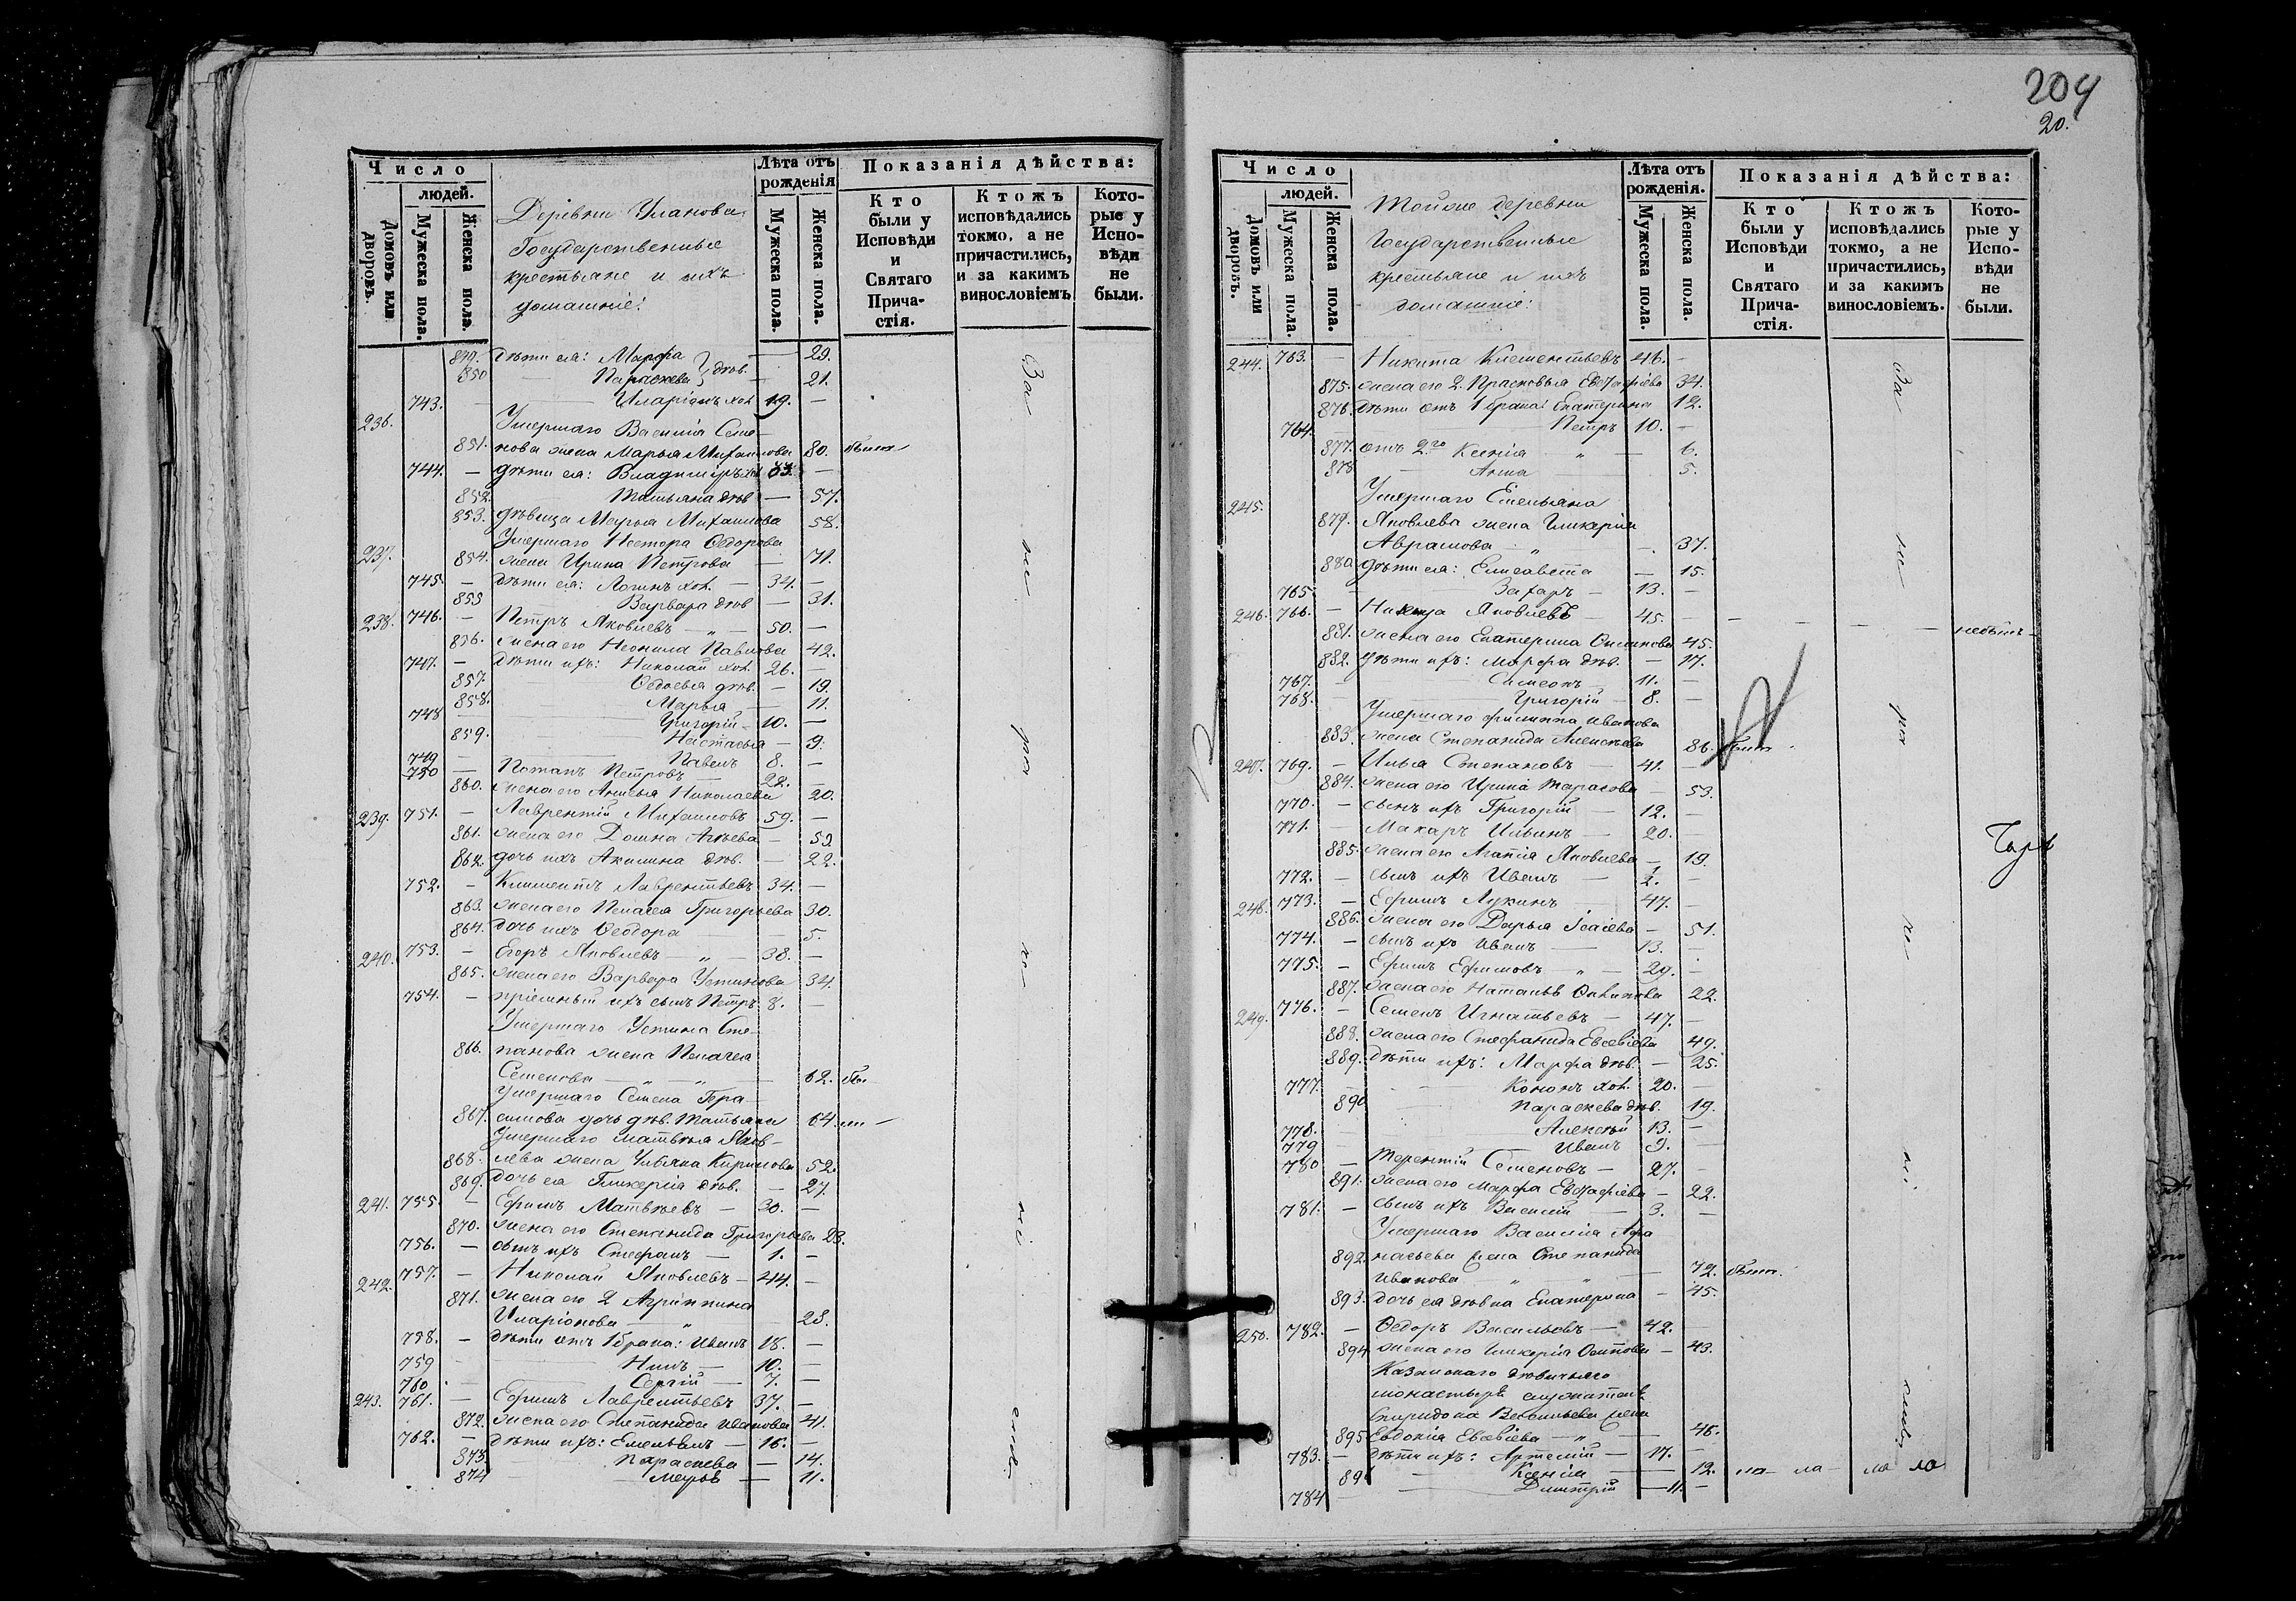 204
20.
Число
людей.
Домовъ или дворовъ.
Мужеска пола.
Женска пола.
Деревни Уланова
Государственные
крестьяне и ихъ
домашніе:
Лѣта отъ рожденія
Мужеска пола.
Женска пола.
Показанія дѣйства:
Кто были у Исповѣди и Святаго Причастія.
Ктожъ исповѣдались токмо, а не причастились, и за какимъ винословіемъ
Которые у Исповѣди не были.
849. дѣти ея: Марфа — 29.
850 Параскева } дѣв. — 21.
743. — Иларіонъ хол. 19. —
236. Умершаго Василія Семе-
851. нова жена Марья Михаилова 80.
744. — дѣти ея: Владиміръ —
852. Татьяна дѣв — 57.
853. дѣвица Марья Михаилова 58.
Умершаго Нестора Ѳедорова
237. 854. жена Ирина Петрова — 71.
745 — дѣти ея: Логинъ хол. — 34. —
855 Варвара дѣв — 31.
238. 746. — Петръ Яковлевъ — „ — 50. —
856. жена его Неонила Павлова 42.
747. — дѣти ихъ: Николай хол. 26. —
857. Ѳедосья дѣв. — 19.
858. Марья — 11.
748 Григорій — 10. —
859. Настасья — 9.
749 Павелъ 8. —
750 — Потапъ Петровъ — 22. —
860. жена его Анисья Николаева 20.
239. 751. — Лаврентій Михаиловъ 59. —
861. жена его Домна Агѣева — 59
862. дочь ихъ Акилина дѣв. — 22.
752. — Климентъ Лаврентьевъ 34. —
863. жена его Пелагея Григорьева 30.
864. дочь ихъ Ѳеодора — 5.
240. 753. — Егоръ Яковлевъ — „ — 38. —
865. жена его Варвара Устинова 34.
754. — пріемный ихъ сынъ Петръ 8. —
Умершаго Устина Сте-
866. панова жена Пелагея
Семенова — „ — „ — 62.
Умершаго Семена Гера-
867. симова дочь дѣв. Татьяна 64.
Умершаго Матвѣя Яков-
868. лева жена Ульяна Кирилова 52.
869. дочь ея Гликерія дѣв. — 27.
241. 755. — Ефимъ Матвѣевъ — 30. —
870. жена его Степанида Григорьева 28.
756. — сынъ ихъ Стефанъ — 1. —
242. 757. — Николай Яковлевъ — 44. —
871. жена его 2 Агриппина
Иларіонова — „ — 28.
758. — дѣти отъ 1 брака: Иванъ 18. —
759 Нилъ — 10. —
760 Сергій — 7. —
243. 761. — Ефимъ Лаврентьевъ 37. —
872. жена его Степанида Иванова 41.
762. — дѣти ихъ: Емельянъ — 16. —
873 Параскева — 14.
874 Марья — 11.
За не ра
Число
людей.
Домовъ или дворовъ.
Мужеска пола.
Женска пола.
Тойже деревни
Государственные
крестьяне и ихъ
домашніе:
Лѣта отъ рожденія.
Мужеска пола.
Женска пола.
Показанія дѣйства:
Кто были у Исповѣди и Святаго Причастія.
Ктожъ исповѣдались токмо, а не причастились, и за какимъ винословіемъ.
Которые у Исповѣди не были.
244. 763. — Никита Климентьевъ 46. —
875. жена его 2. Прасковья Евстафіева 34.
876. дѣти отъ 1 брака: Екатерина 12.
764. — Петръ 10. —
877. отъ 2го Ксенія — „ — 6.
878 Анна — 5.
245. Умершаго Емельяна
879. Яковлева жена Гликерія
Аврамова „ — 37.
880 дѣти ея: Елисавета — 15.
765. Захаръ — 13. —
246. 766. — Никита Яковлевъ — 45. —
881. жена его Екатерина 45.
882. дѣти ихъ: Марфа дѣв. — 17.
767. Симеонъ — 11. —
768. Григорій — 8. —
Умершаго Филиппа Иванова
883. жена Степанида Алексѣева 86.
247. 769. — Илья Степановъ — 41. —
884. жена его Ирина Тарасова — 53.
770. — сынъ ихъ Григорій — 12. —
771. — Макаръ Ильинъ — 20. —
885. жена его Агапія Яковлева — 19.
772. — сынъ ихъ Иванъ — ½. —
248. 773. — Ефимъ Лукинъ — 47. —
886. жена его Дарья Ісаіева — 51.
774. — сынъ ихъ Иванъ — 13. —
775. — Ефимъ Ефимовъ — „ — 29. —
887. жена его Наталья 22.
249. 776. — Семенъ Игнатьевъ — 47. —
888. жена его Стефанида Евсевіева 49.
889. дѣти ихъ: Марфа дѣв. — 25.
777. Кононъ хол. 20. —
890 Параскева дѣв. 19.
778. Алексѣй 13. —
779 Иванъ 9. —
780 — Терентій Семеновъ — 27. —
891. жена его Марфа Евстафіева — 22.
781. — сынъ ихъ Василій — 3. —
Умершаго Василія Афа
892. насьева жена Степанида
Иванова „ „ — 72.
893. дочь ея дѣвка Екатерина — 45.
250. 782. — Ѳедоръ Васильевъ — 42. —
894 жена его Гликерія Осипова — 43.
Казанскаго дѣвичьяго
монастыря служителя
Спиридона Васильева жена
895 Евдокія Евсевіева — „ — 46.
783. — дѣти ихъ: Артемій — 17. —
89 Ксенія — 12.
784 Димитрій — 11. —
За не ра